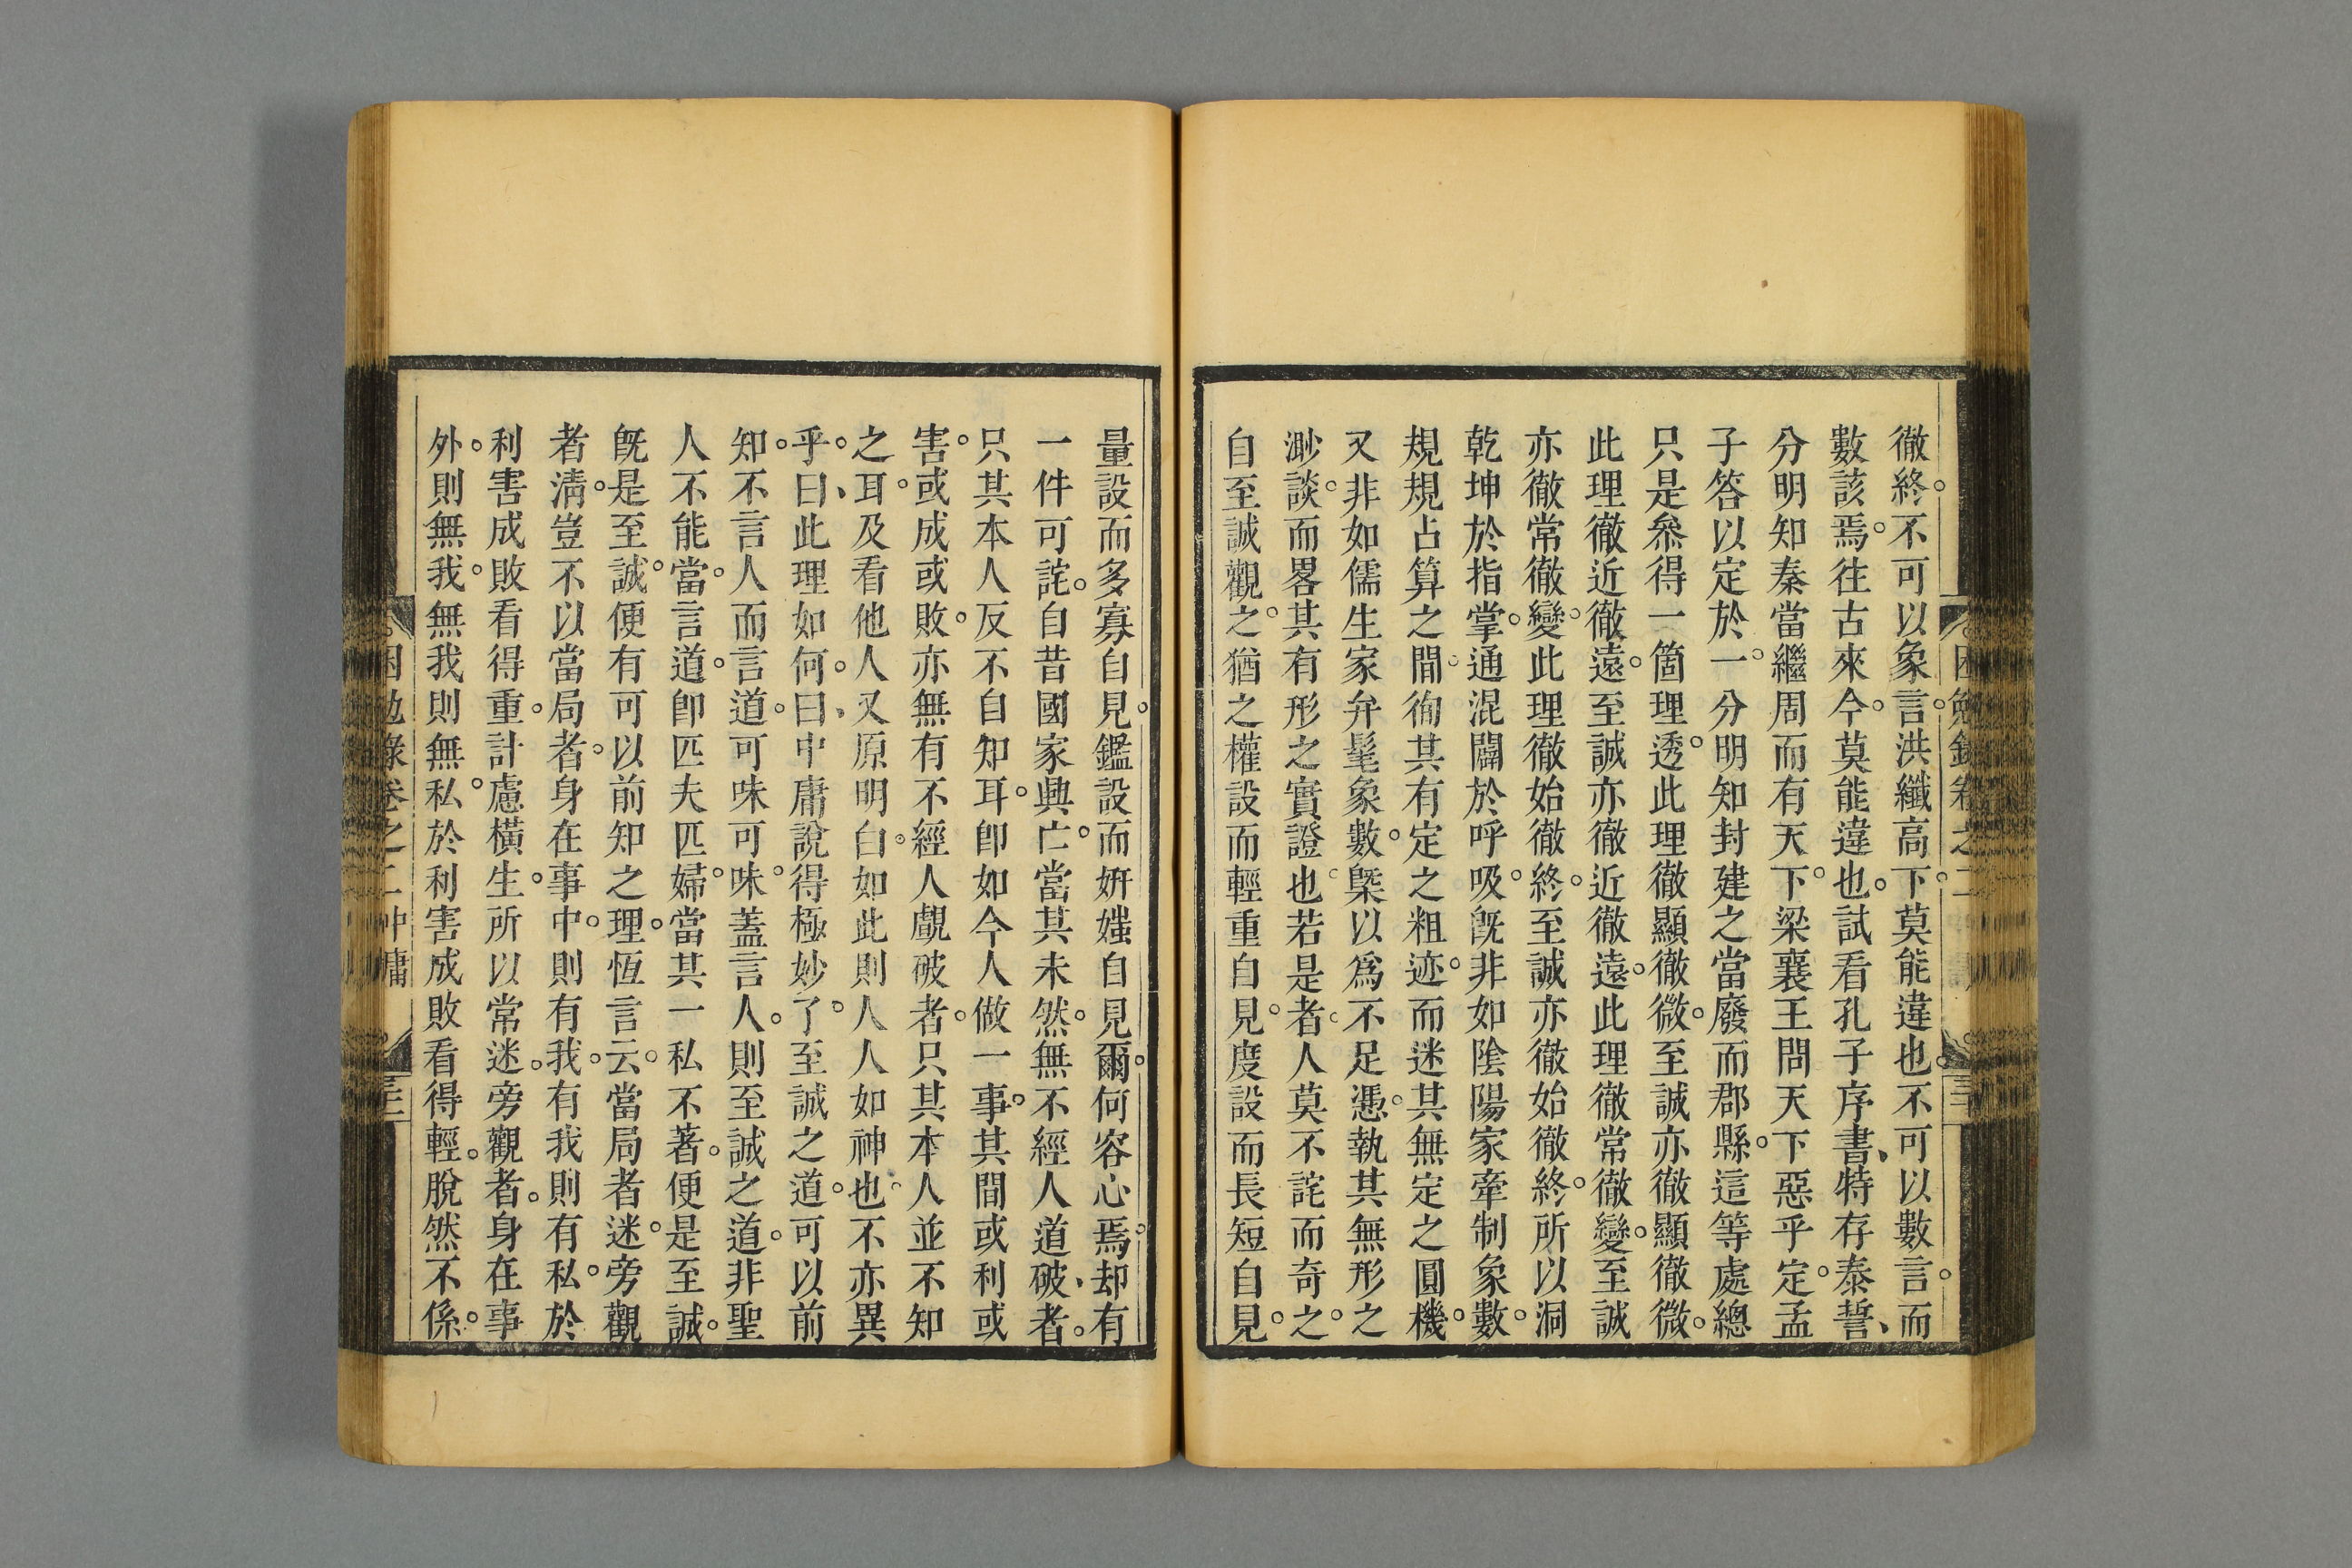 徹終。不可以象言。洪纖高下。莫能違也。不可以數言。而
數該焉。往古來今。莫能違也。試看孔子序書、特存秦誓、
分明知秦當繼周而有天下。梁襄王問天下惡乎定。孟
子答以定於一。分明知封建之當廢而郡縣。這等處總
只是叅得一箇理透。此理徹顯徹微。至誠亦徹顯徹微。
此理徹近徹遠。至誠亦徹近徹遠。此理徹常徹變。至誠
亦徹常徹變。此理徹始徹終。至誠亦徹始徹終。所以洞
乾坤於指掌。通混闢於呼吸。旣非如陰陽家牽制象數。
規規占算之間。徇其有定之粗迹。而迷其無定之圓機。
又非如儒生家弁髦象數。槩以爲不足憑。執其無形之
渺談。而畧其有形之實證也。若是者。人莫不詫而奇之。
自至誠觀之。猶之權設而輕重自見。度設而長短自見。
量設而多寡自見。鑑設而妍媸自見爾。何容心焉。却有
一件可詫。自昔國家興亡。當其未然。無不經人道破、者。
只其本人反不自知耳。卽如今人做一事。其間或利或
害。或成或敗。亦無有不經人覷破者。只其本人並不知
之耳。及看他人又原明白。如此則人人如神也。不亦異
乎。曰、此理如何。曰、中庸說得極妙了。至誠之道。可以前
知。不言人而言道。可味可味。蓋言人。則至誠之道。非聖
人不能當。言道。卽匹夫匹婦。當其一私不著。便是至誠。
旣是至誠。便有可以前知之理。恆言云。當局者迷。旁觀
者清。豈不以當局者。身在事中。則有我。有我則有私。於
利害成敗看得重。計慮橫生。所以常迷。旁觀者。身在事
外。則無我。無我則無私。於利害成敗看得輕。脫然不係。
困勉錄卷之二 中庸